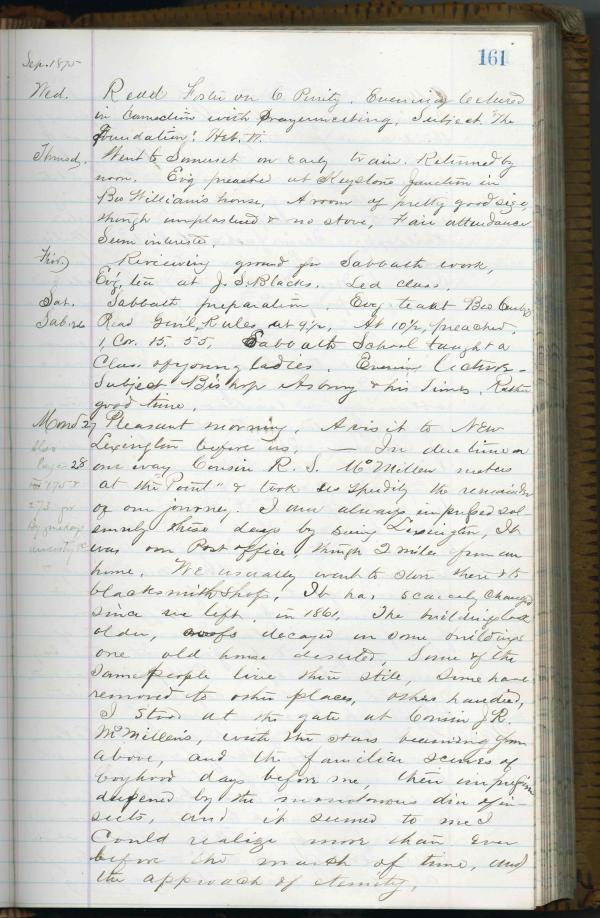 161
Sep. 1875
Wed. Read Foster on C Purity. Evening lectured
in connection with prayermeeting, Subject. The
Foundation! Heb. 11.
Thursd. Went to Somerset on early train. Returned by
noon. Evg preached at Keystone Junction in
Bro William's house, A room of pretty good size,
though unplastered & no stove, Fair attendance
Sum interest,
Fri. Reviewing ground for Sabbath work,
Evg, tea at J. S. Blacks. Led class.
Sat. Sabbath preparation. Evg tea at Bro
Sab. 26 Read Genl, Rules at 9½. At 10½, preached.
1, Cor. 15. 55. Sabbath School taught a
Class of young ladies. Evening lecture -
Subject Bishop Asbury & his Times. Rather
good time.
Mond 27 Pleasant morning. A visit to New
Lexington before us. — In due time on
our way Cousin R. S. McMillen meets
at the "Point" & took us speedily the remainder
of our journey. I am always impressed sol
emnly these days by seeing Lexington, It
was our Post office, though 2 miles from our
home. We usually went to store there & to
blacksmithshop, It has scarcely changed
since we left, in 1861, The buildings look
older, roofs decayed in some buildings
one old house deserted, Some of the
same people live there still, some have
removed to other places, others have died,
I stood at the gate at Cousin J R.
McMillen's, with the stars beaming from
above, and the familiar scenes of
boyhood days before me, then impression
deepened by the monotonous din of in-
sects, and it seemed to me I
could realize more than ever
before the march of time, and
the approach of eternity.
also
Page 28